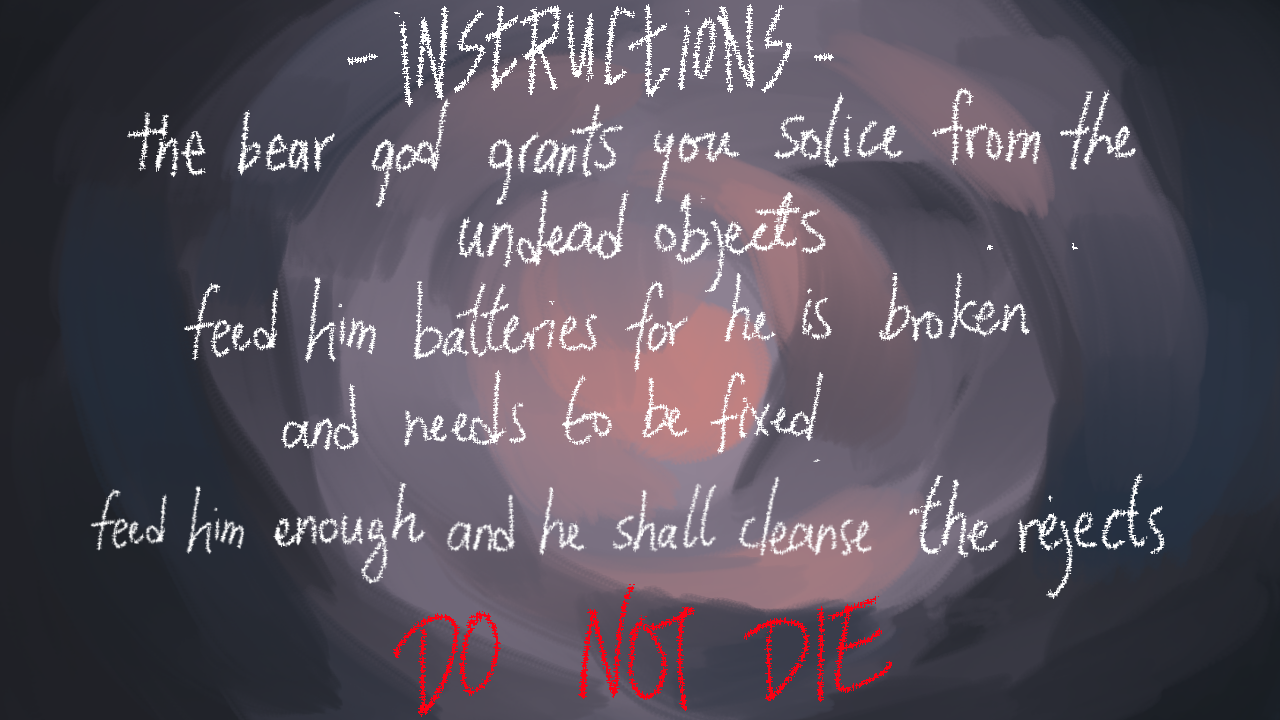 - INStRUCtIONS -
the bear god grants you solice from the
undead objects
feed him batteries for he is broken
and needs to be fixed
feed him enough and he shall cleanse the rejects
DO NOT DIE